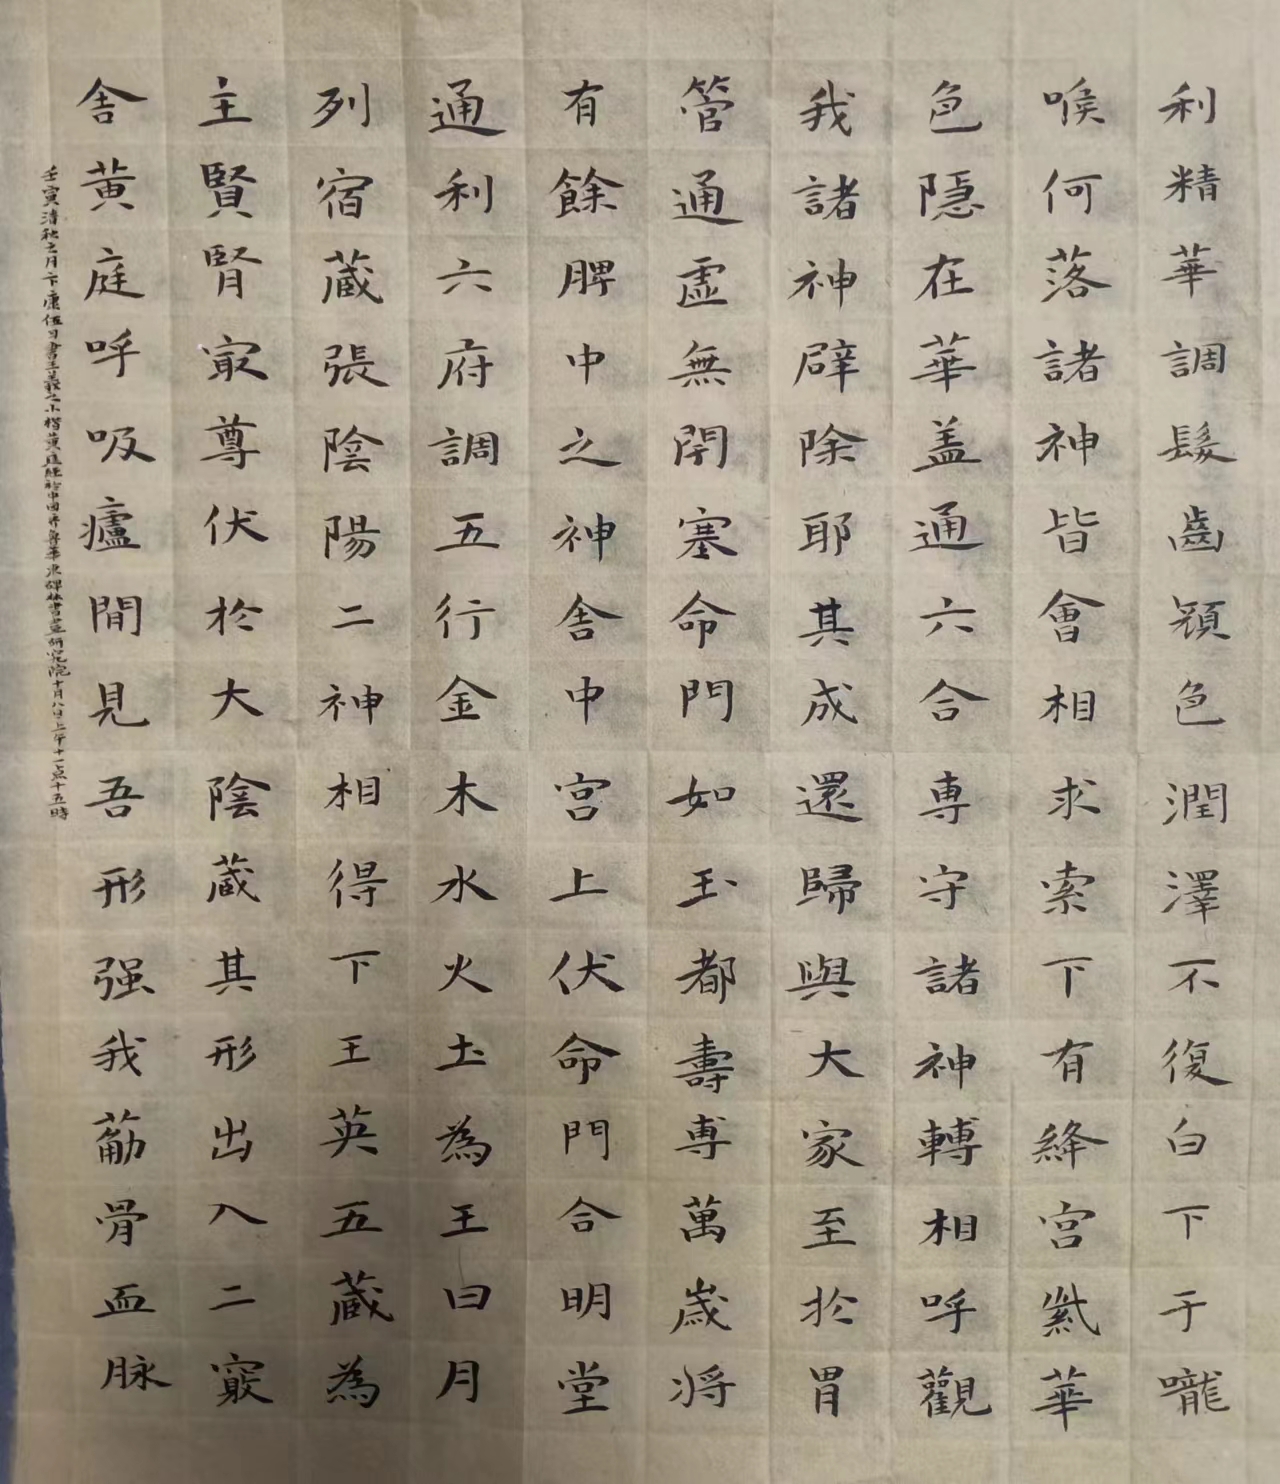 利精華調髮齒顏色潤澤不復白下于嚨
喉何落諸神皆會相求索下有絳宮紫華
色隱在華盖通六合専守諸神轉相呼觀
我諸神辟除耶其成還歸與大家至於胃
管通虛無閉塞命門如玉都壽専萬歲将
有餘脾中之神舍中宮上伏命門合明堂
通利六府調五行金木水火土為王日月
列宿蔵張陰陽二神相得下王英五蔵為
主賢腎寂尊伏於大陰蔵其形出入二竅
舍黃庭呼吸廬間見吾形强我筋骨血脉
壬寅清秋之月下康伍日書王羲之小楷黃庭經於中国齊魯華夏碑林書畫研究院十月八日上午十一点十五時